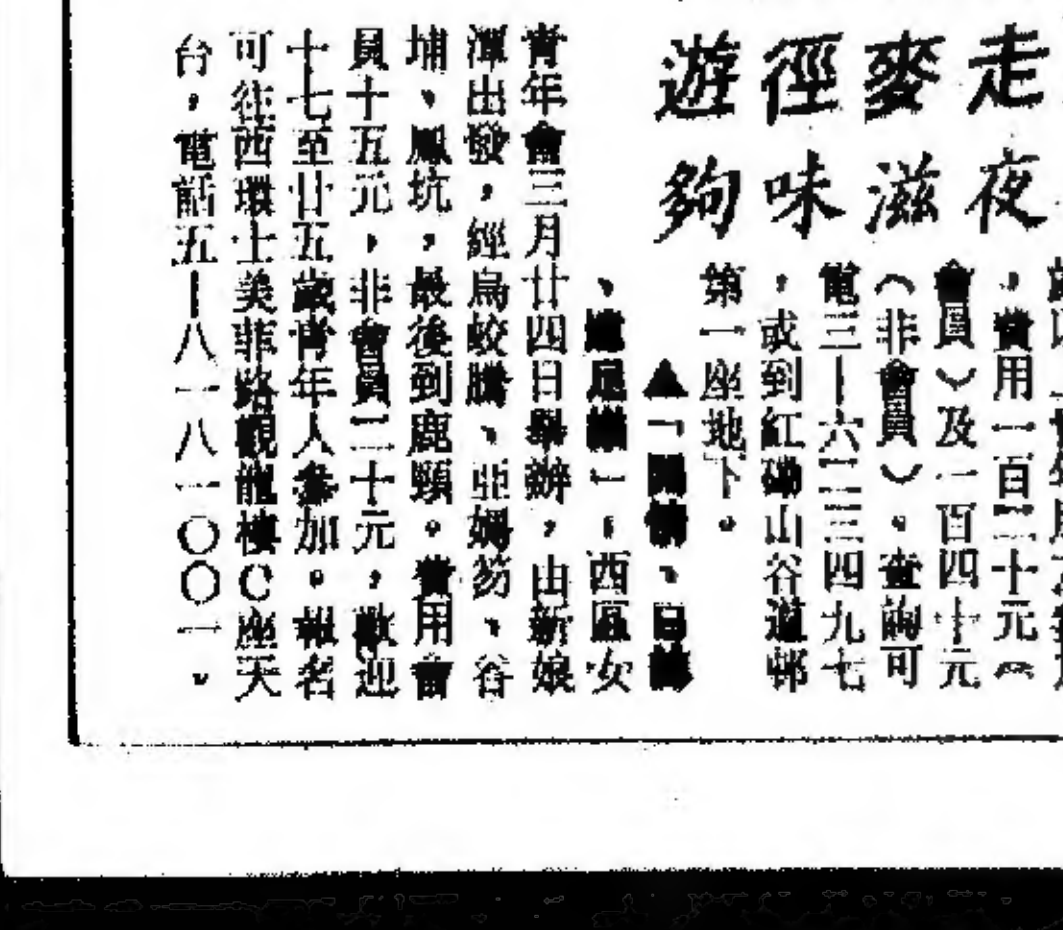 走夜
麥滋
徑味
遊夠
，費用一百二十元（
會員）及一百四十元
（非會員）。查詢可
電三—六二三四九七
，或到紅磡山谷道邨
第一座地下。
▲「閒情、日
、遠足樂」，西區女
青年會三月廿四日舉辦，由新娘
潭出發，經烏蛟騰、亞媽笏、谷
埔、鳳坑，最後到鹿頸。費用會
員十五元，非會員二十元，歡迎
十七至廿五歲青年人參加。報名
可往西環士美菲路觀龍樓C座天
台，電話五—八一八一〇〇一。